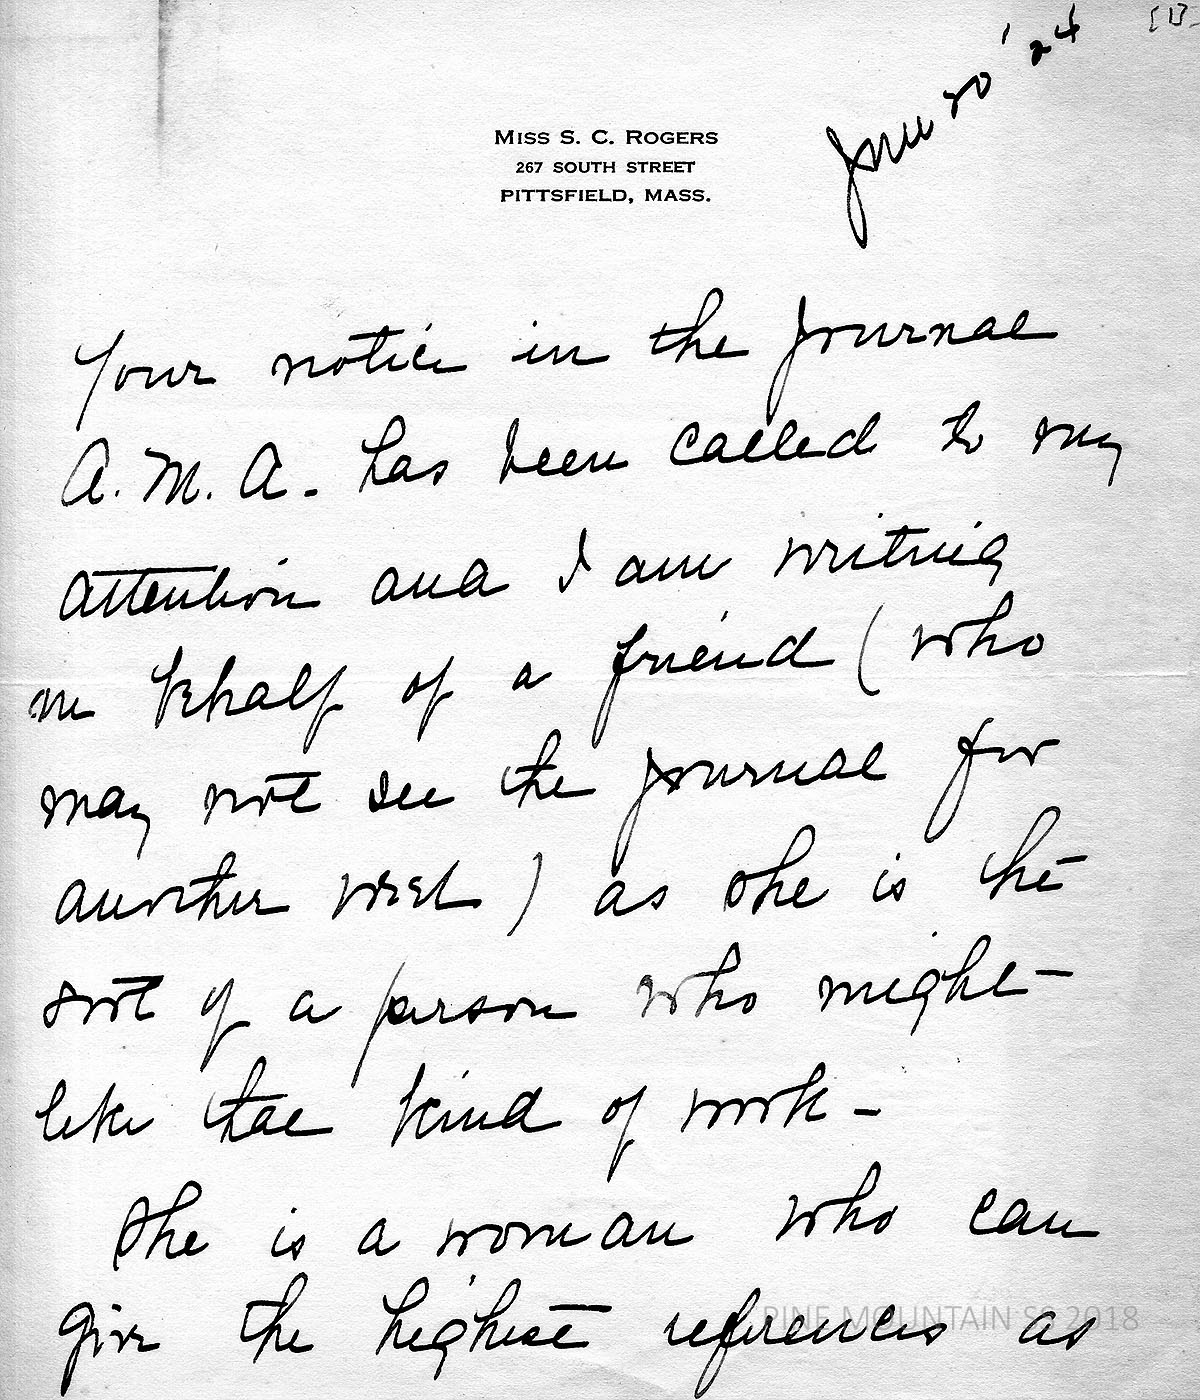 [1]
June 20 '24
MISS S. C. ROGERS
267 SOUTH STREET
PITTSFIELD, MASS.
Your notice in the Journal
A. M. A. has been called to my
attention and I am writing
in behalf of a friend (who
may not see the Journal for
another week) as she is the
sort of a person who might
like that kind of work -
She is a woman who can
give the highest references as
PINE MOUNTAIN SS 2018